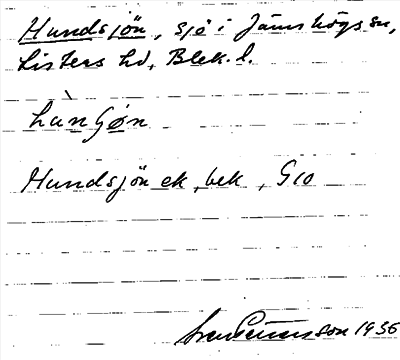 Hundsjön, sjö i Jämshögs sn,
Listers hd, Blek. l.
Hundsjön ek, bek, G10
1936